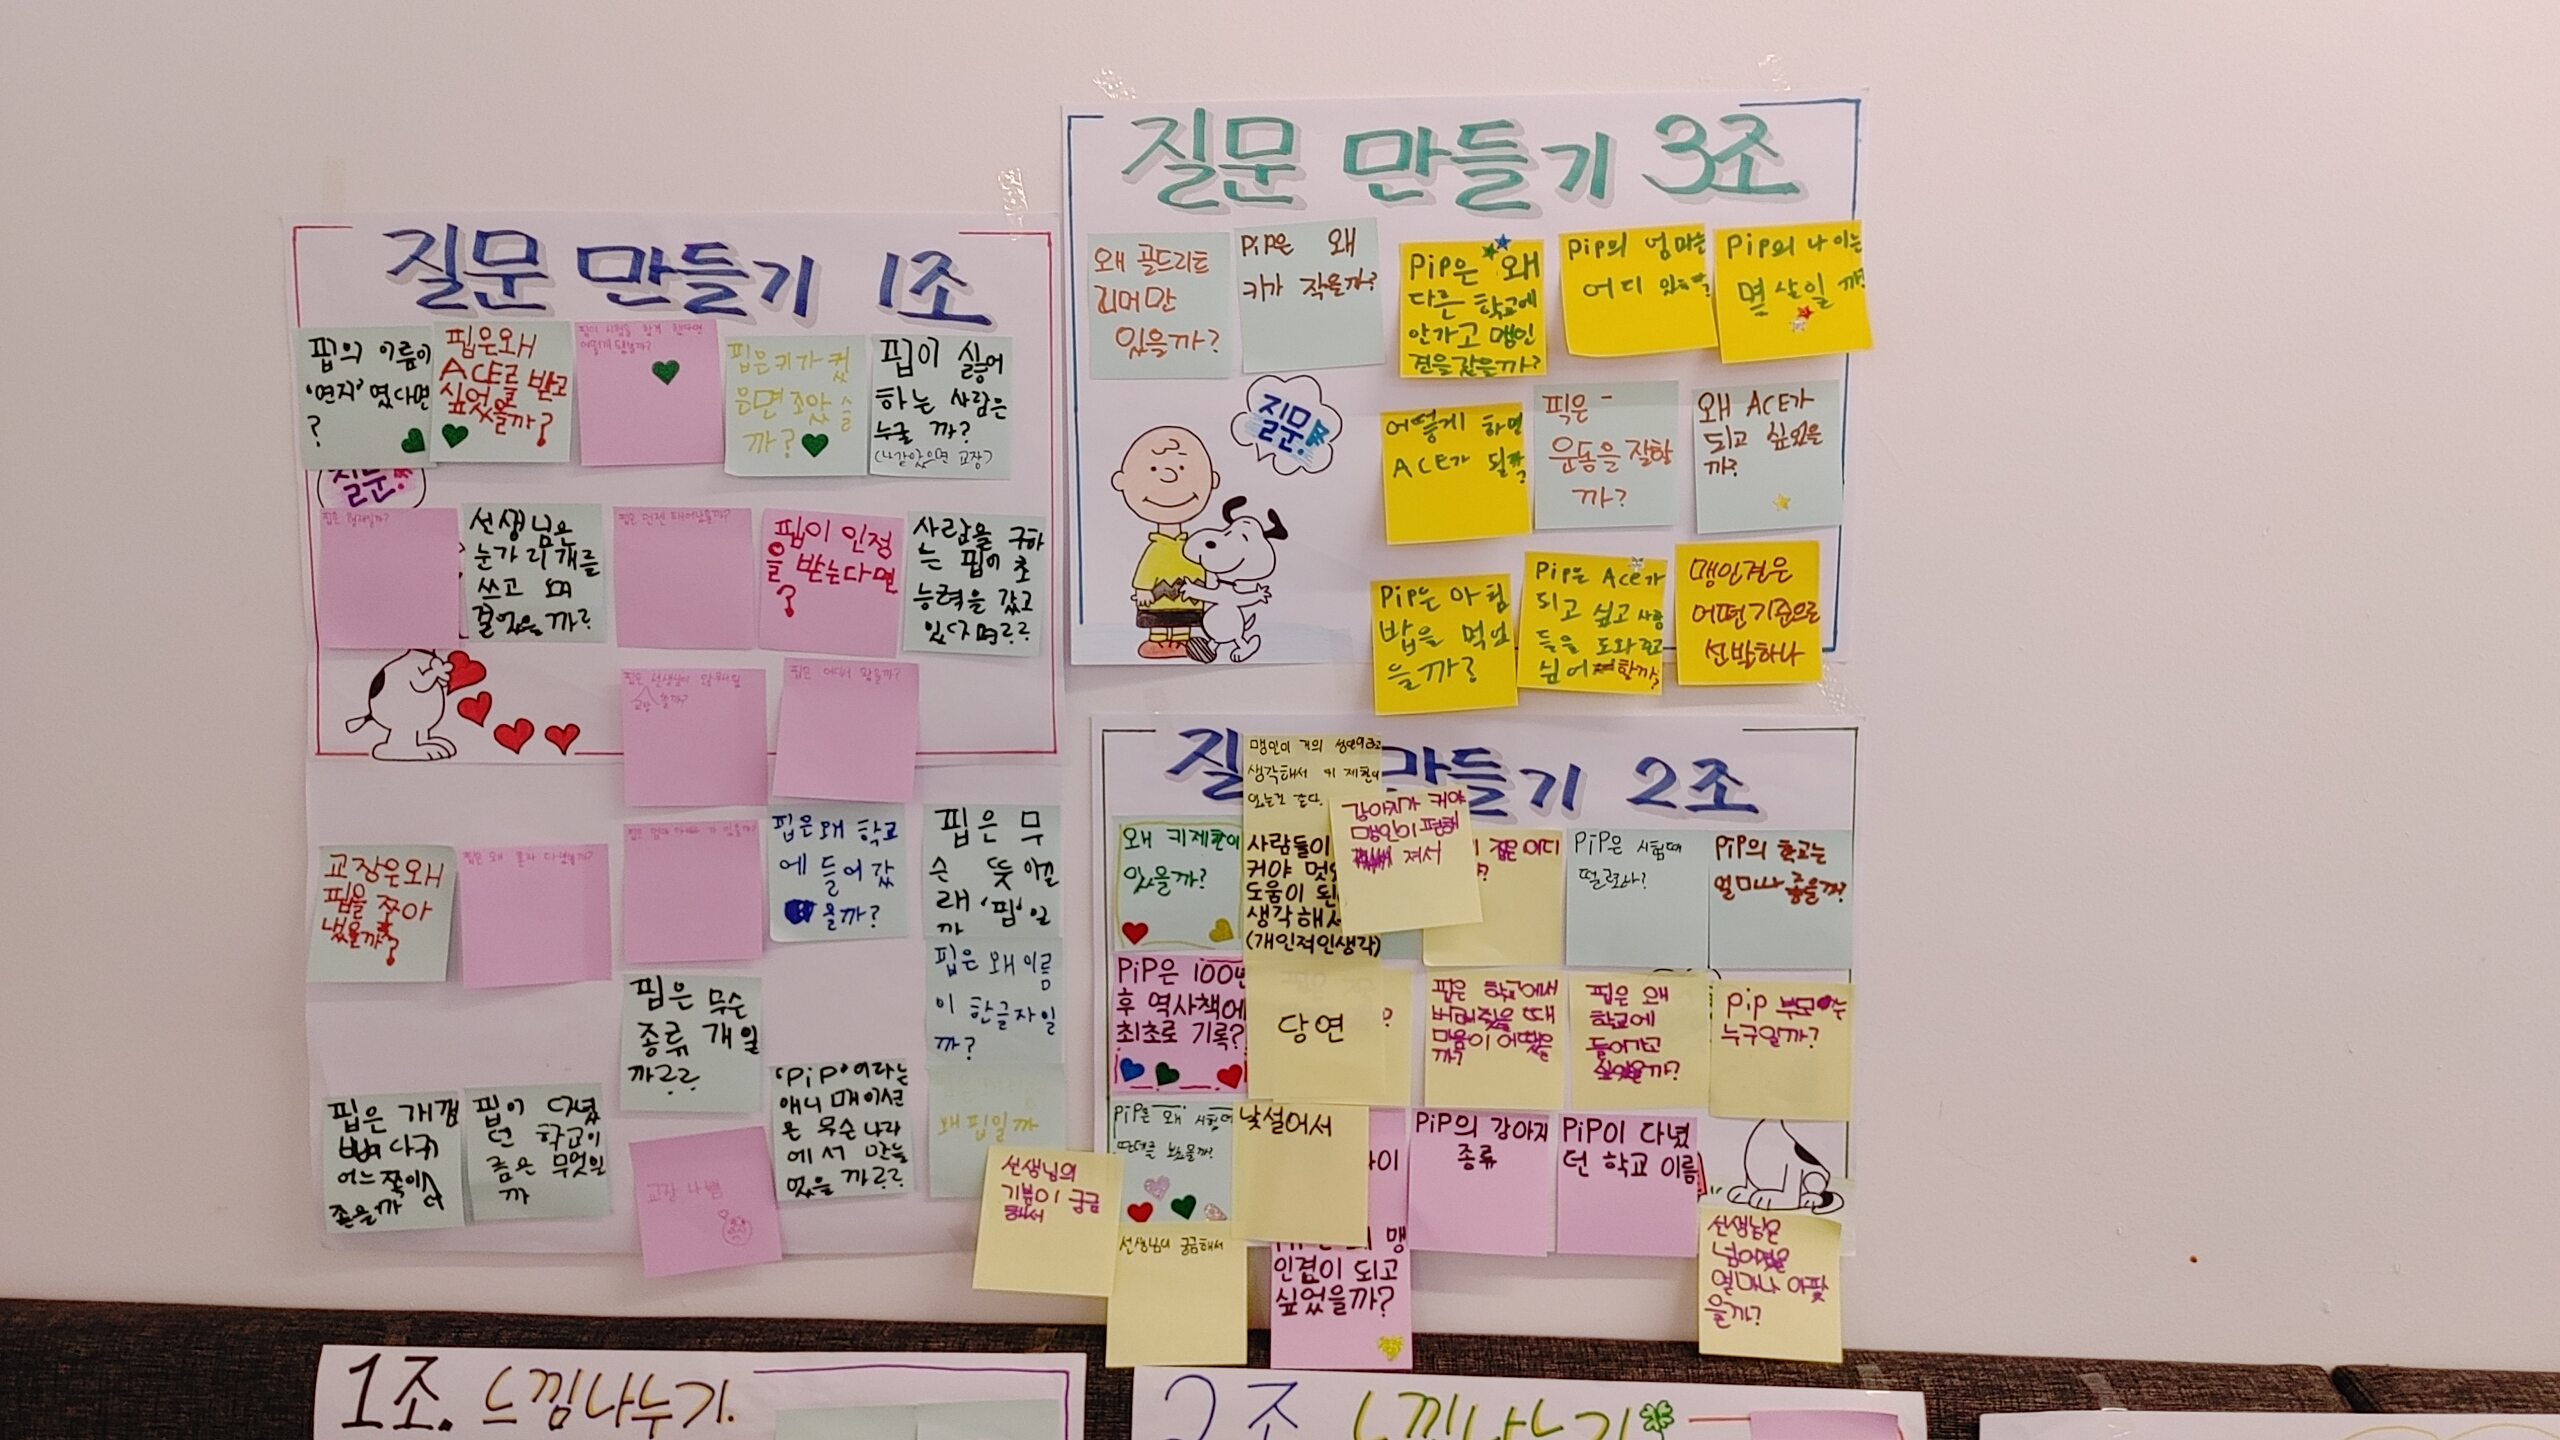 질문 만들기 1조
핍의 이름이
'연지' 였다면
?
핍은왜
ACE를 받고
싶었을까?
핍은키가 컸
을면 조았을
까?
핍이 싫어
하는 사람은
누굴 까?
질문!
선생님은
눈가리개를
쓰고
핍이 인정
을 받는다면
?
사람을 구하
는 핍이 초
능력을 갔고
핍은 어디서 왔을까?
교장은왜
핍을 쫓아
냈을까?
핍은 왜 혼자 다녔을까?
핍은 엄마 아빠가 있을까?
핍은왜 학교
에 들어 갔
을까?
핍은 무
슨 뜻 이길
래 '핍'일
까
핍은 무슨
종류 개일
까??
핍은 왜 이름
이 한글자일
까?
핍은 개껌
어느쪽이
좋을까
핍이 다녔
던 학교이
름은 무엇일
까
교장 나쁨
'PiP'이라는
애니메이션
은 무슨 나라
에서 만들
었을 까??
왜 핍일까
질문 만들기 3조
왜 골드리트
리버만
있을까?
PiP은 왜
키가 작을까?
PiP은 왜
다른 학교에
안가고 맹인
견을 갔을까?
Pip의 엄마는
어디 있을까?
Pip의 나이는
몇 살일 까?
질문!
어떻게 하면
ACE가 될까
픽은 -
운동을 잘할
까?
왜 ACE가
되고 싶었을
까?
Pip은 아침
밥을 먹었
을까?
Pip은 Ace가
되고 싶고 사람
들을 도와주고
싶어 할까?
맹인견은
어떤기준으로
선발하나
만들기 2조
맹인이
생각해서 키 제한이
있는것 같다.
강아지가 커야
맹인이 편해
져서
왜 키제한이
있을까?
사람들이
커야
도움이 된
생각해서
(개인적인생각)
집은 어디
PiP은 시험때
떨렸나?
PiP의 학교는
얼마나 좋을까?
PiP은 100년
후 역사책에
최초로 기록?
당연
핍은 학교에서
버려졌을 때
마음이 어땠을
까?
핍은 왜
학교에
들어가고
싶었을까?
pip 부모는
누구일까?
PiP은 왜 시험에
낯설어서
PiP의 강아지
종류
PiP이 다녔
던 학교 이름
선생님의
기분이 궁금
해서
선생님이 궁금해서
맹
인견이 되고
싶었을까?
선생님은
넘어졌을
얼마나 아팟
을까?
1조. 느낌나누기.
2조 느낌나누기